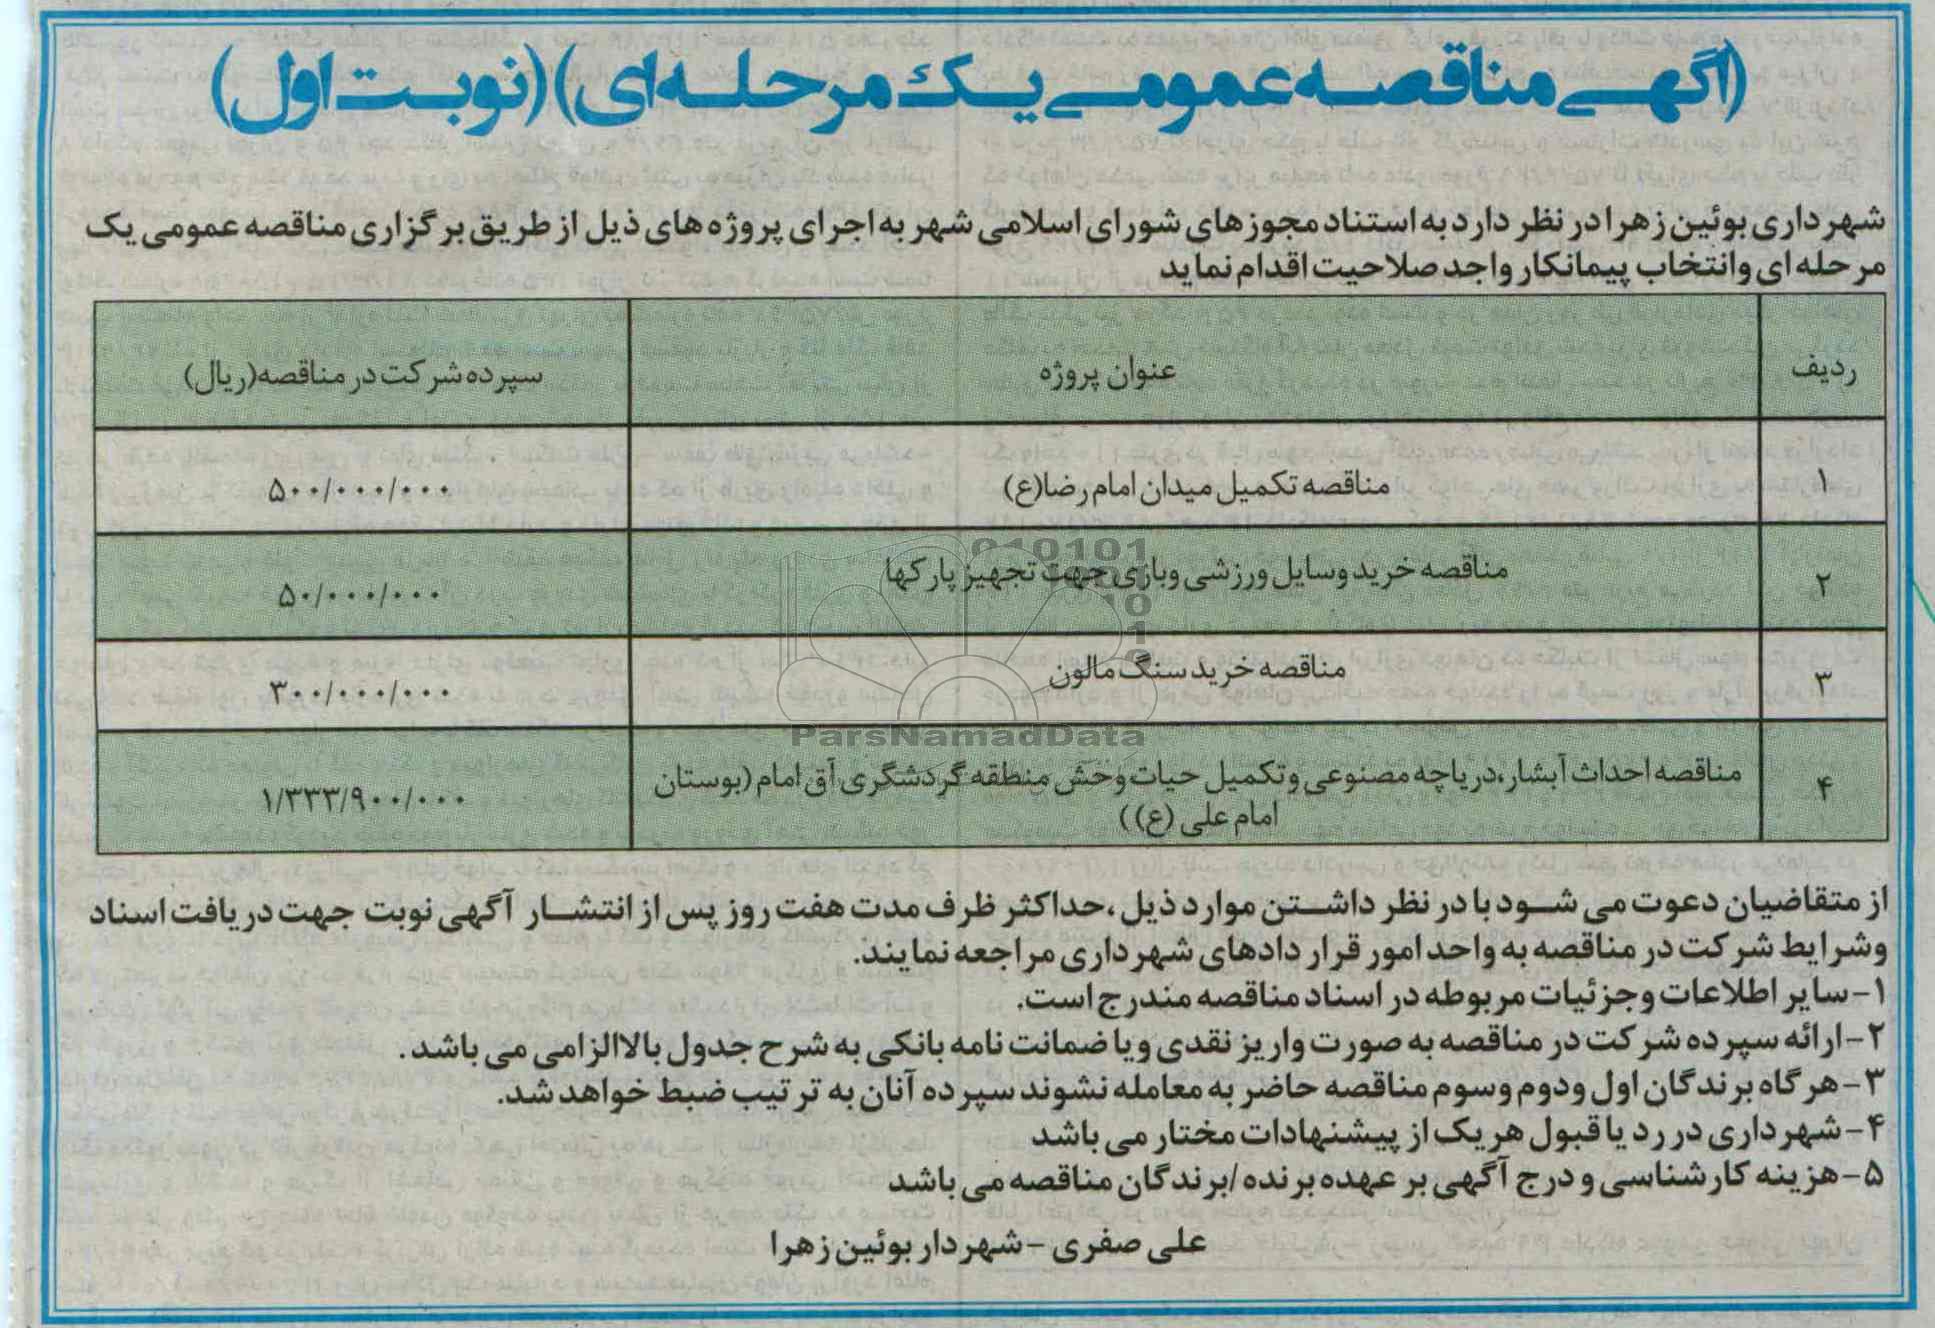 (آگهی مناقصه عمومی یک مرحله ای) (نوبت اول)
شهرداری بوئین زهرا در نظر دارد به استناد مجوزهای شورای اسلامی شهر به اجرای پروژه های ذیل از طریق برگزاری مناقصه عمومی یک
مرحله ای وانتخاب پیمانکار واجد صلاحیت اقدام نماید
ردیف عنوان پروژه سپرده شرکت در مناقصه(ریال)
۱ مناقصه تکمیل میدان امام رضا(ع) ۵۰۰/۰۰۰/۰۰۰
۲ مناقصه خرید وسایل ورزشی وبازی جهت تجهیز پارکها ۵۰/۰۰۰/۰۰۰
۳ مناقصه خرید سنگ مالون ۳۰۰/۰۰۰/۰۰۰
۴ مناقصه احداث آبشار،دریاچه مصنوعی وتکمیل حیات وحش منطقه گردشگری آق امام (بوستان
امام علی (ع)) ۱/۳۳۳/۹۰۰/۰۰۰
از متقاضیان دعوت می شود با در نظر داشتن موارد ذیل ،حداکثر ظرف مدت هفت روز پس از انتشار آگهی نوبت جهت دریافت اسناد
وشرایط شرکت در مناقصه به واحد امور قرار دادهای شهرداری مراجعه نمایند.
۱-سایر اطلاعات وجزئیات مربوطه در اسناد مناقصه مندرج است.
۲-ارائه سپرده شرکت در مناقصه به صورت واریز نقدی ویا ضمانت نامه بانکی به شرح جدول بالاالزامی می باشد .
۳-هرگاه برندگان اول ودوم وسوم مناقصه حاضر به معامله نشوند سپرده آنان به ترتیب ضبط خواهد شد.
۴-شهرداری در رد یا قبول هریک از پیشنهادات مختار می باشد
۵-هزینه کارشناسی و درج آگهی بر عهده برنده /برندگان مناقصه می باشد
علی صفری -شهردار بوئین زهرا
010101
10
1
ParsNamadData